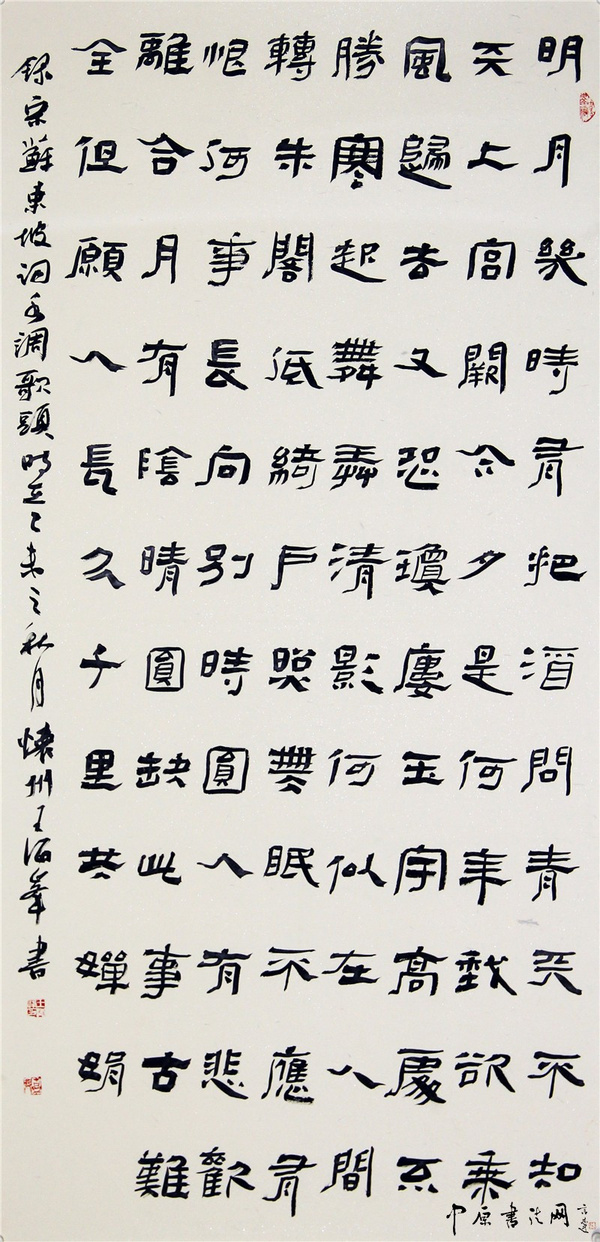 明月幾時有把酒問青天不知
天上宮闕今夕是何年我欲乘
風歸去又恐瓊廔玉宇高處不
勝寒起舞弄清影何似在人間
轉朱閣低綺戶照無眠不應有
恨何事長向別時圓人有悲歡
離合月有陰晴圓缺此事古難
全但願人長久千里共嬋娟
錄宋蘇東坡詞水調歌頭時在乙未之秋月懷州王海峯書
中原書法网